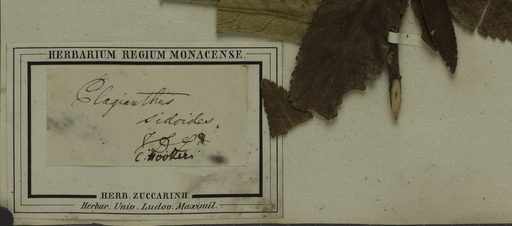 HERBARIUM REGIUM MONACENSE.
Plagianthus
sidoides.
C. Hooker.
HERB. ZUCCARINII
Herbar. Univ. Ludov. Maximil.